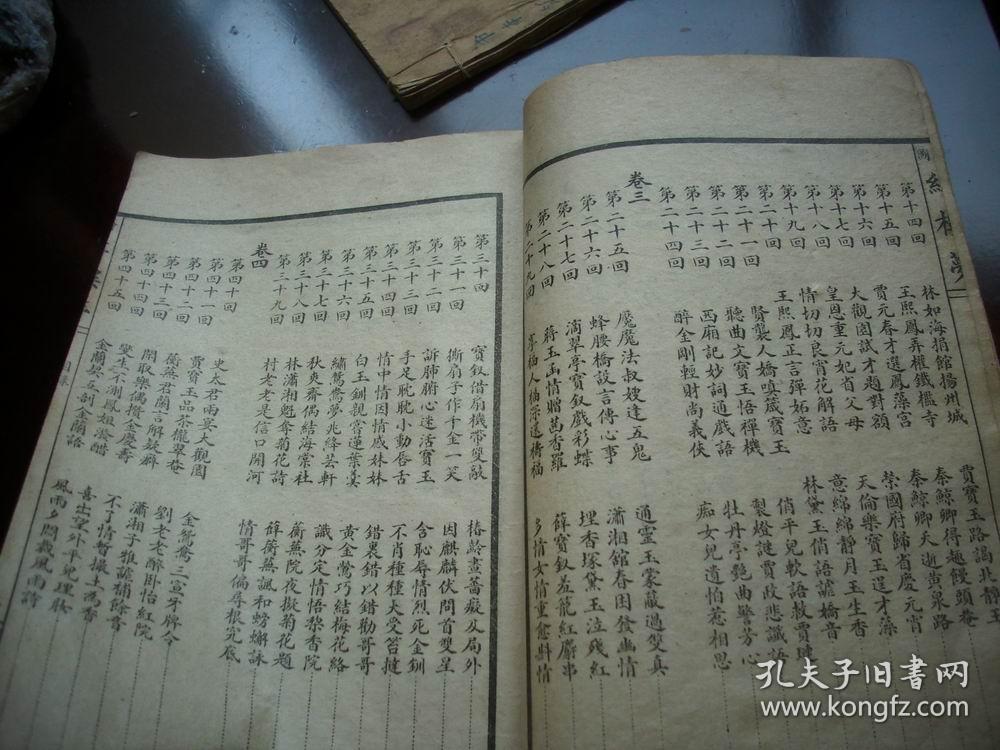 紅樓夢
第十四回 林如海捐館揚州城 賈寶玉路謁北靜王
第十五回 王熙鳳弄權鐵檻寺 秦鯨卿得趣饅頭庵
第十六回 賈元春才選鳳藻宮 秦鯨卿夭逝黃泉路
第十七回 大觀園試才題對額 榮國府歸省慶元宵
第十八回 皇恩重元妃省父母 天倫樂寶玉逞才藻
第十九回 情切切良宵花解語 意綿綿靜月玉生香
第二十回 王熙鳳正言彈妬意 林黛玉俏語謔嬌音
第二十一回 賢襲人嬌嗔箴寶玉 俏平兒軟語救賈璉
第二十二回 聽曲文寶玉悟禪機 製燈謎賈政悲讖語
第二十三回 西廂記妙詞通戲語 牡丹亭艷曲警芳心
第二十四回 醉金剛輕財尚義俠 痴女兒遺怕惹相思
卷三
第二十五回 魘魔法叔嫂逢五鬼 通靈玉蒙蔽遇雙真
第二十六回 蜂腰橋設言傳心事 瀟湘館春困發幽情
第二十七回 滴翠亭寶釵戲彩蝶 埋香塚黛玉泣殘紅
第二十八回 蔣玉函情贈茜香羅 薛寶釵羞籠紅麝串
第二十九回 享福人福深還禱福 多情女情重愈斟情
第三十回 寶釵借扇機帶雙敲 椿齡畫薔癡及局外
第三十一回 撕扇子作千金一笑 因麒麟伏問首雙星
第三十二回 訴肺腑心迷活寶玉 含恥辱情烈死金釧
第三十三回 手足眈眈小動唇舌 不肖種種大受笞撻
第三十四回 情中情因情感妹妹 錯裏錯以錯勸哥哥
第三十五回 白玉釧親嘗蓮葉羹 黃金鶯巧結梅花絡
第三十六回 繡鴛鴦夢兆絳芸軒 識分定情悟梨香院
第三十七回 秋爽齋偶結海棠社 蘅蕪院夜擬菊花題
第三十八回 林瀟湘魁奪菊花詩 薛蘅蕪諷和螃蠏詠
第三十九回 村老老是信口開河 情哥哥偏尋根究底
卷四
第四十回 史太君兩宴大觀園 金鴛鴦三宣牙牌令
第四十一回 賈寶玉品茶櫳翠庵 劉老老醉臥怡紅院
第四十二回 蘅蕪君蘭言解疑癖 瀟湘子雅謔補餘音
第四十三回 閒取樂偶攢金慶壽 不了情暫撮土為香
第四十四回 變生不測鳳姐潑醋 喜出望外平兒理妝
第四十五回 金蘭契互剖金蘭語 風雨夕悶裁風雨詩
目錄
孔夫子旧书网
www.kongfz.com